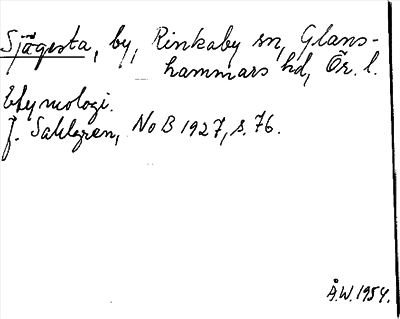 Sjägesta, by, Rinkaby sn, Glans-
hammars hd, Ör. l.
Etymologi.
J. Sahlgren, NoB 1927, s. 76.
Å.W. 1954.